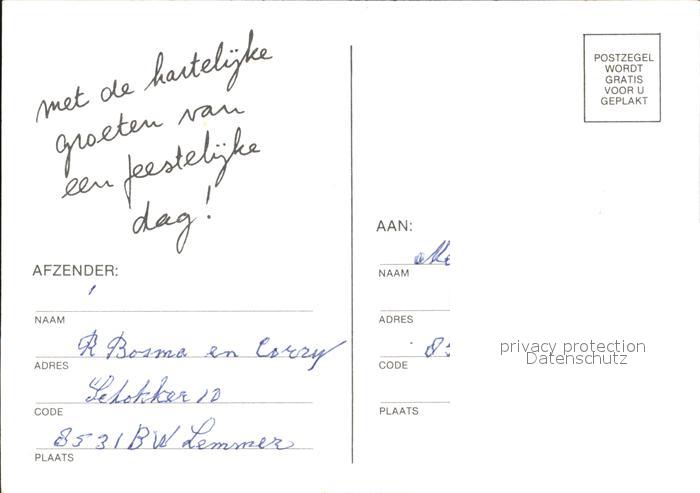 met de hartelijke
groeten van
een feestelijke
dag!
AFZENDER:
NAAM
R Bosma en Corry
ADRES
Schokker 10
CODE
8531 BW Lemmer
PLAATS
POSTZEGEL
WORDT
GRATIS
VOOR U
GEPLAKT
AAN:
NAAM
ADRES
CODE
PLAATS
privacy protection
Datenschutz